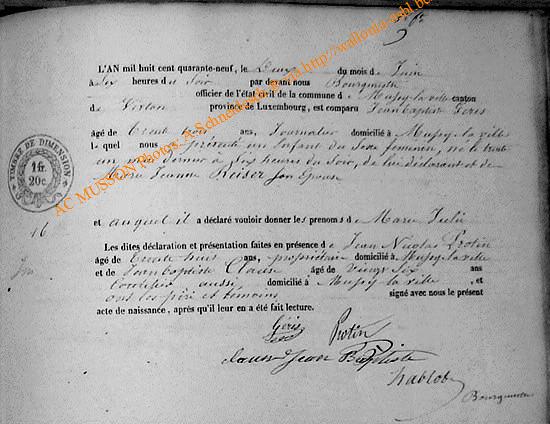 L'AN mil huit cent quarante-neuf, le Deux du mois de Juin
à Six heures du Soir par devant nous Bourgmestre
officier de l'état civil de la commune de Mussy-la-ville canton
de Virton province de Luxembourg, est comparu Jean Baptiste Géris
âgé de Trente ans, Journalier domicilié à Mussy-la-ville
le quel nous a présenté un Enfant du Sexe féminin, né le trente
un mai dernier à Six heures du Soir, de lui déclarant et de
Marie Jeanne Reiser Son Epouse
TIMBRE DE DIMENSION
1 fr.
20c.
et auquel il a déclaré vouloir donner les prenoms de Marie Julie
16
Les dites déclaration et présentation faites en présence de Jean Nicolas Protin
âgé de Trente huit ans, propriétaire domicilié à Mussy-la-ville
et de Jean baptiste Claus âgé de Vingt Six ans
aussi domicilié à Mussy-la-ville et
ont les père et témoins signé avec nous le présent
acte de naissance, après qu'il leur en a été fait lecture.
Géris Protin
Claus Jean Baptiste
Bourgmestre
AC MUSSON Photos: A Schneider via http://wallonia-asbl.be